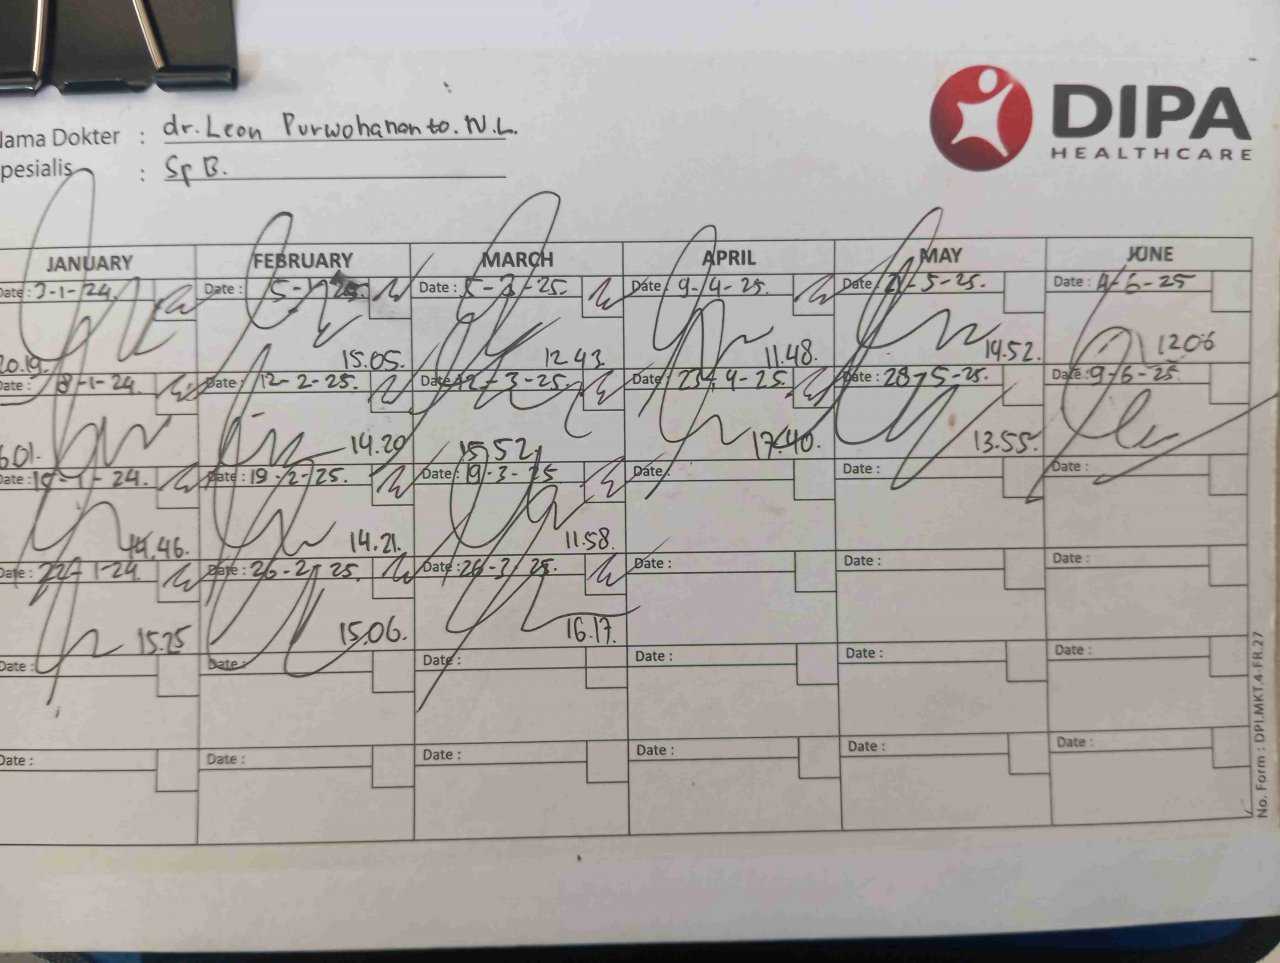 DIPA
HEALTHCARE
Nama Dokter : dr. Leon Purwohananto. N.L.
Spesialis : Sp B.
JANUARY FEBRUARY MARCH APRIL MAY JUNE
Date : 3-1-24. Date : 5- Date : 5-3-25. Date : 9-4-25. Date : 21-5-25. Date : 4-6-25
20.19. 15.05. 12.43 11.48. 14.52. 12.06
Date : 8-1-24. Date : 12-2-25. Date : 12-3-25. Date : 23-4-25. Date : 28-5-25. Date : 9-6-25.
6.01. 14.20 15.52. 17.40. 13.55.
Date : -1-24. Date : 19-2-25. Date : 19-3-25. Date : Date : Date :
14.46. 14.21. 11.58.
Date : 22-1-24. Date : 26-2-25. Date : 26-3-25. Date : Date : Date :
15.25 15.06. 16.17.
Date : Date : Date : Date : Date : Date :
Date : Date : Date : Date : Date : Date :
No. Form : DPI.MKT.4-FR.27